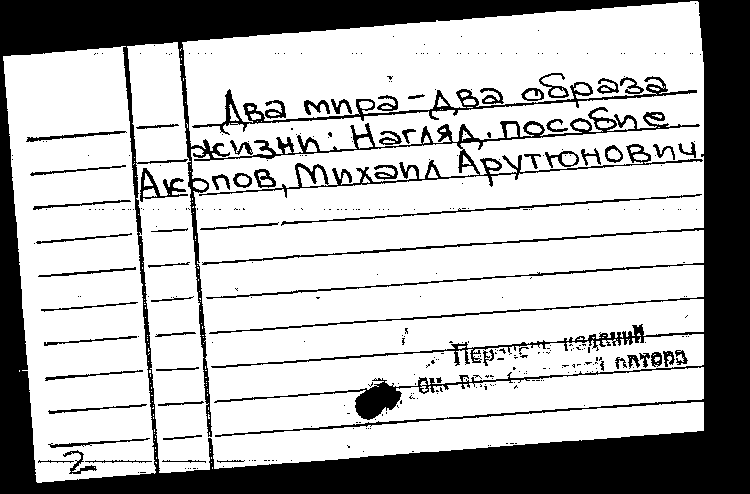 Два мира - два образа
жизни: Нагляд. пособие
Акопов, Михаил Арутюнович.
Перечень изданий
см. под автора
2